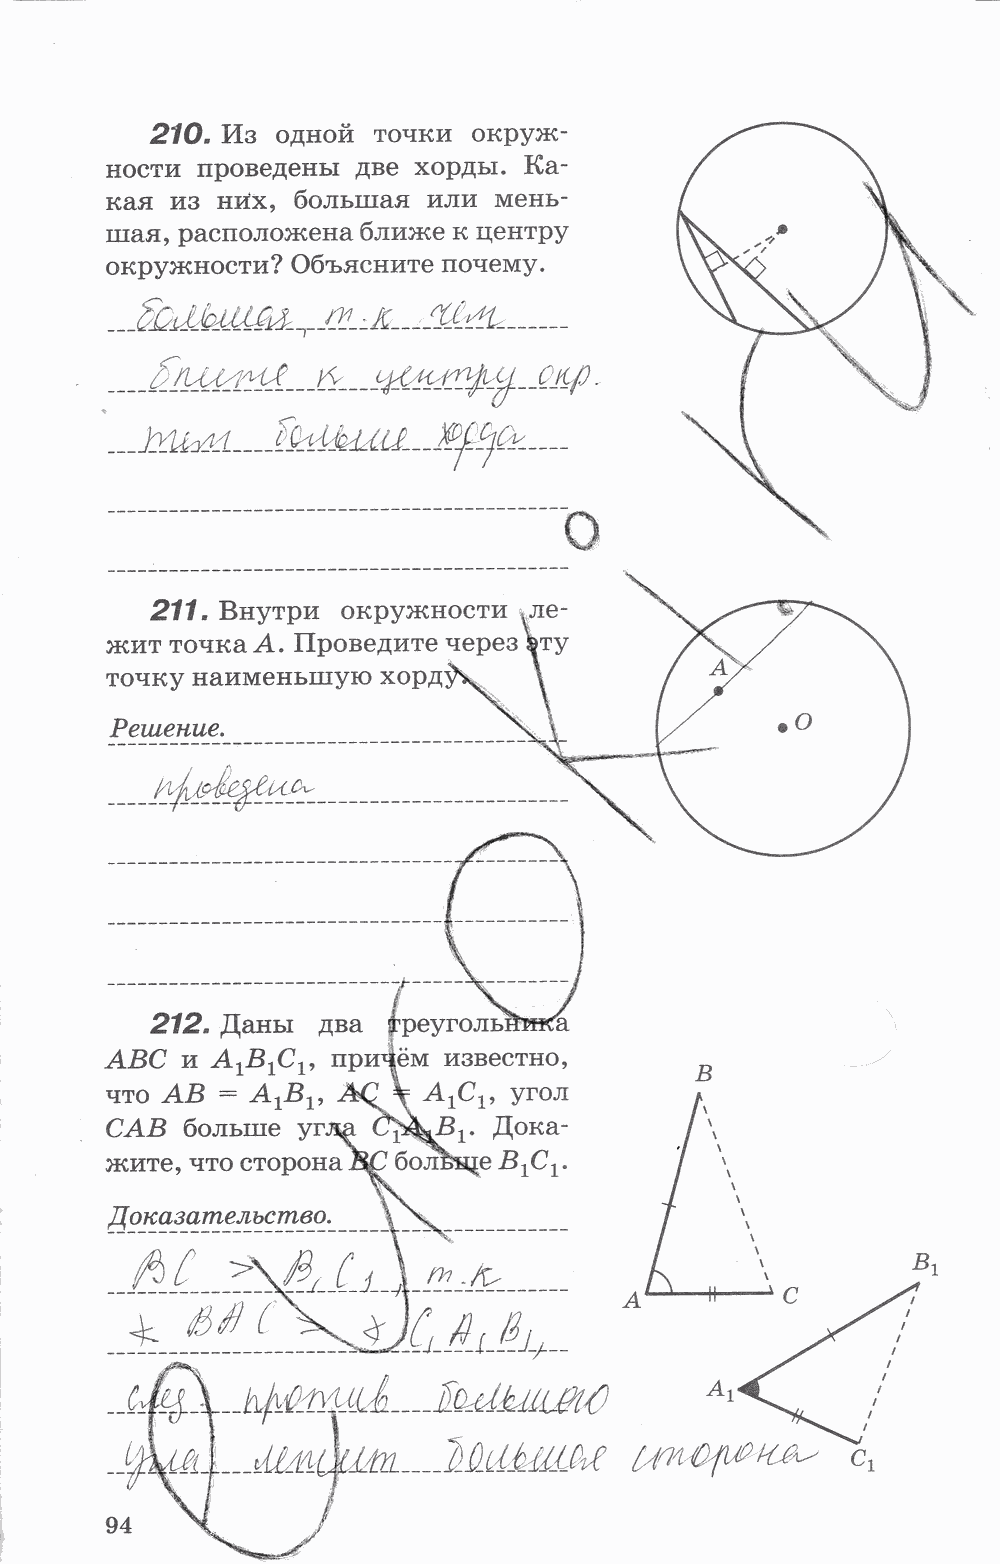 210. Из одной точки окруж-
ности проведены две хорды. Ка-
кая из них, большая или мень-
шая, расположена ближе к центру
окружности? Объясните почему.
большая, т.к чем
ближе к центру окр.
тем больше хорда
211. Внутри окружности ле-
жит точка A. Проведите через эту
точку наименьшую хорду.
A
O
Решение.
проведена
212. Даны два треугольника
ABC и A₁B₁C₁, причём известно,
что AB = A₁B₁, AC = A₁C₁, угол
CAB больше угла C₁A₁B₁. Дока-
жите, что сторона BC больше B₁C₁.
Доказательство.
BC > B₁C₁, т.к
∢ BAC > ∢ C₁A₁B₁,
след. против большего
угла лежит большая сторона
B
A
C
B₁
A₁
C₁
94